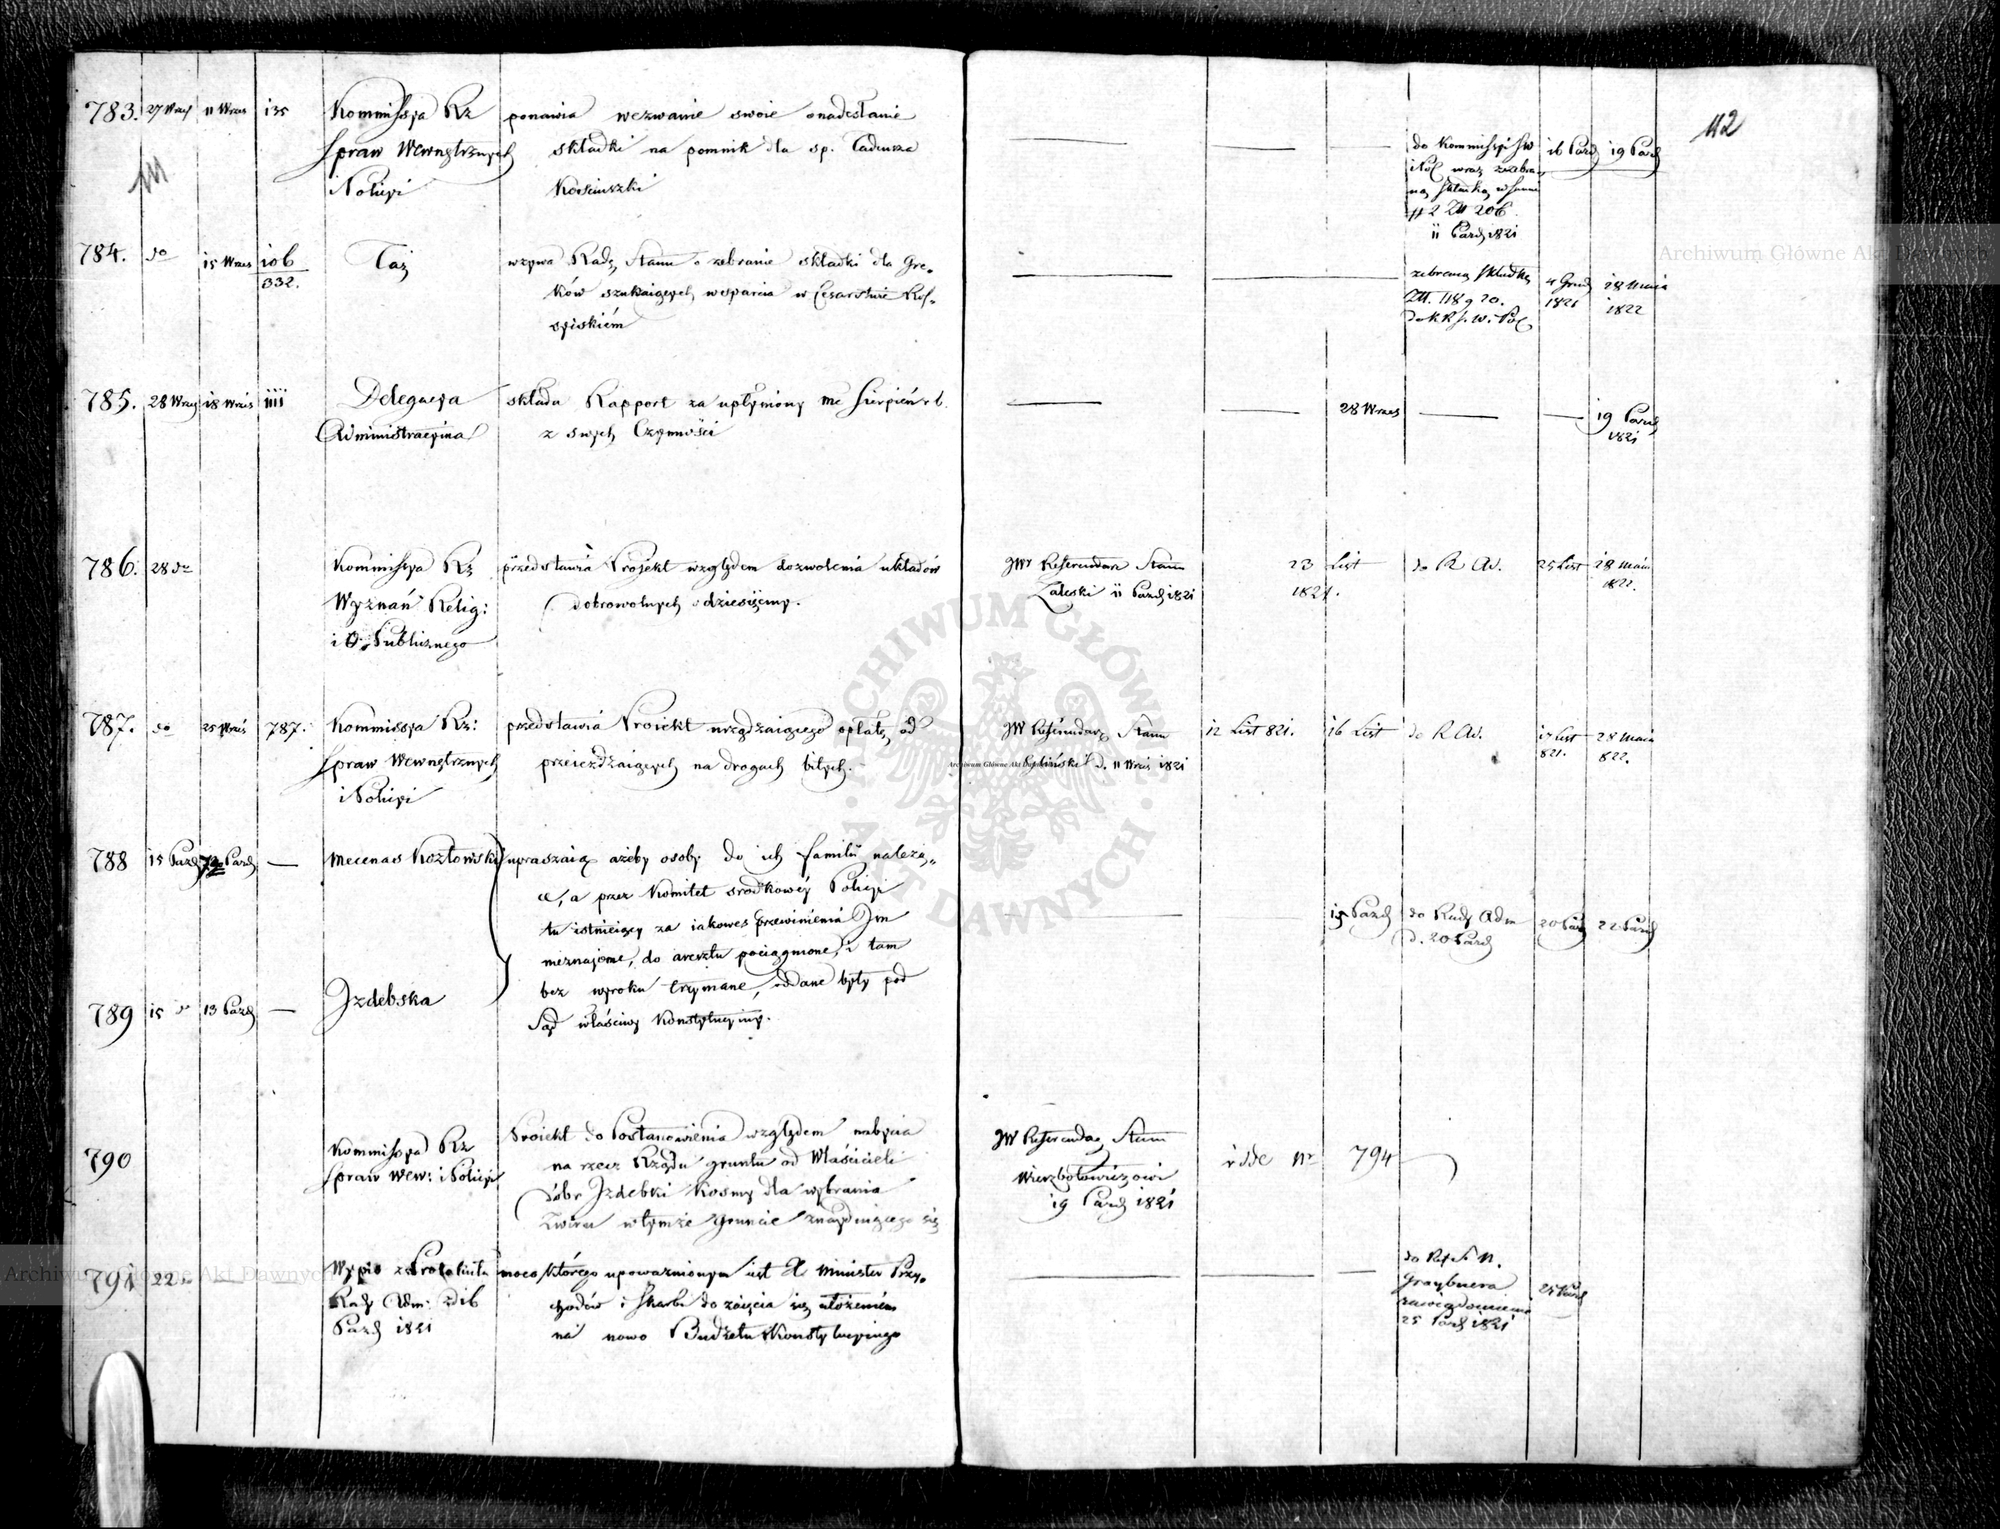 42
783. 27 Wrześ 11 Wrześ 135 Kommissya Rz ponawia wezwanie swoie o nadesłanie
Spraw Wewnętrznych składki na pomnik dla sp. Tadeusza
i Policyi Kościuszki
do Kommissyi SW 16 Pazd 19 Pazd
i Pol wraz z zebra
ną składką w summie
# 2 Zł 206.
11 Pazd 1821
784. do 15 Wrześ 106 Taż wzywa Radę Stanu o zebranie składki dla Gre-
332. ków szukaiących wsparcia w Cesarstwie Ros-
syiskiém
zebraną składkę 4 Grud 28 Maia
Zł. 118 g 20. 1821 1822
do K R S. W. i Pol
785. 28 Wrześ 18 Wrześ 1111 Delegacya składa Rapport za upłyniony mc Sierpień r b.
Administracyina z swych Czynności
28 Wrześ 19 Pazd
1821
786. 28 do Kommissya Rz przedstawia Proiekt względem dozwolenia układów
Wyznań Relig: dobrowolnych o dziesięciny.
i O. Publicznego
JWr Referendarz Stanu 23 List do R Ad. 25 List 28 Maia
Zaleski 11 Pazd 1821 1821. 1822.
787. do 25 Wrześ 787. Kommissya Rz: przedstawia Proiekt urządzaiącego opłatę od
Spraw Wewnętrznych przeieżdżaiących na drogach bitych.
i Policyi
JW Referendarz Stanu 12 List 821. 16 List do R Ad. 17 List 28 Maia
d. 11 Wrześ 1821 821. 822.
788 15 Pazd Pazd — Mecenas Kozłowski upraszaią ażeby osoby do ich familii należą-
ce, a przez Komitet srodkowey Policyi
tu istnieiący za iakoweś przewinienia Im
nieznaiome, do aresztu pociągnione, i tam
bez wyroku trzymane, oddane były pod
Sąd właściwy Konstytucyiny.
19 Pazd do Rady Adm 20 Pazd 22 Pazd
d. 20 Pazd
789 15 do 13 Pazd — Izdebska
790 Kommissya Rz Proiekt do Postanowienia względem nabycia
Spraw Wew: i Policyi na rzecz Rządu gruntu od Właścicieli
dóbr Izdebki Kosmy dla wybrania
żwiru w tymże gruncie znayduiącego się
JW Referendarz Stanu vide Nr 794
Wierzbołowiczowi
19 Pazd 1821
791 22 do Wypis z Protokułu moca którego upoważnionym iest X. Minister Przy-
Rady Adm: z d 16 chodów i Skarbu do zaięcia się ułożeniem
Pazd 1821 na nowo Budżetu Konstytucyinego
do Ref S N.
Graybnera 25 Pazd
zawiadomienie
25 Pazd 1821
Archiwum Główne Akt Dawnych
Archiwum Główne Akt Dawnych
Archiwum Główne Akt Dawnych
ARCHIWUM GŁÓWNE AKT DAWNYCH